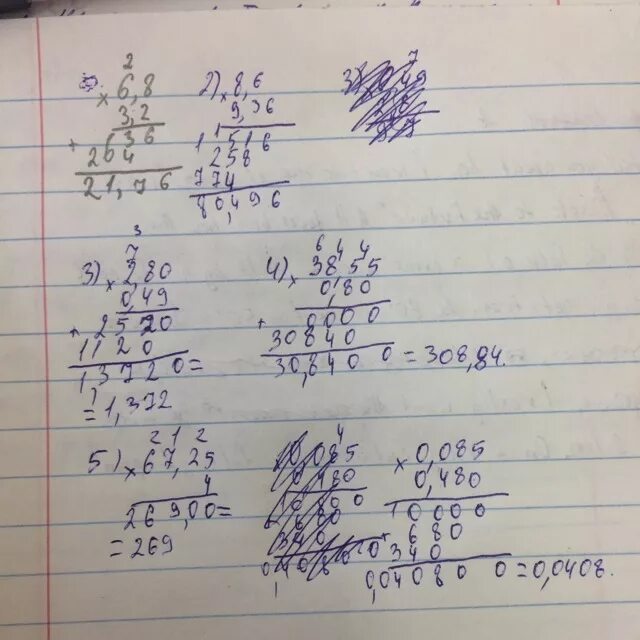 2
× 6,8
3,2
+ 136
204
21,76
2) × 8,6
9,36
1 516
258
774
80,496
3)
7
3
7
3) × 2,80
0,49
+ 2520
1120
1,3720 =
= 1,372
6 4 4
4) × 38,55
0,80
+ 0000
30840
30,8400 = 308,84.
2 1 2
5) × 67,25
4
269,00 =
= 269
4
× 0,085
0,480
+ 0000
680
340
0,040800 = 0,0408.